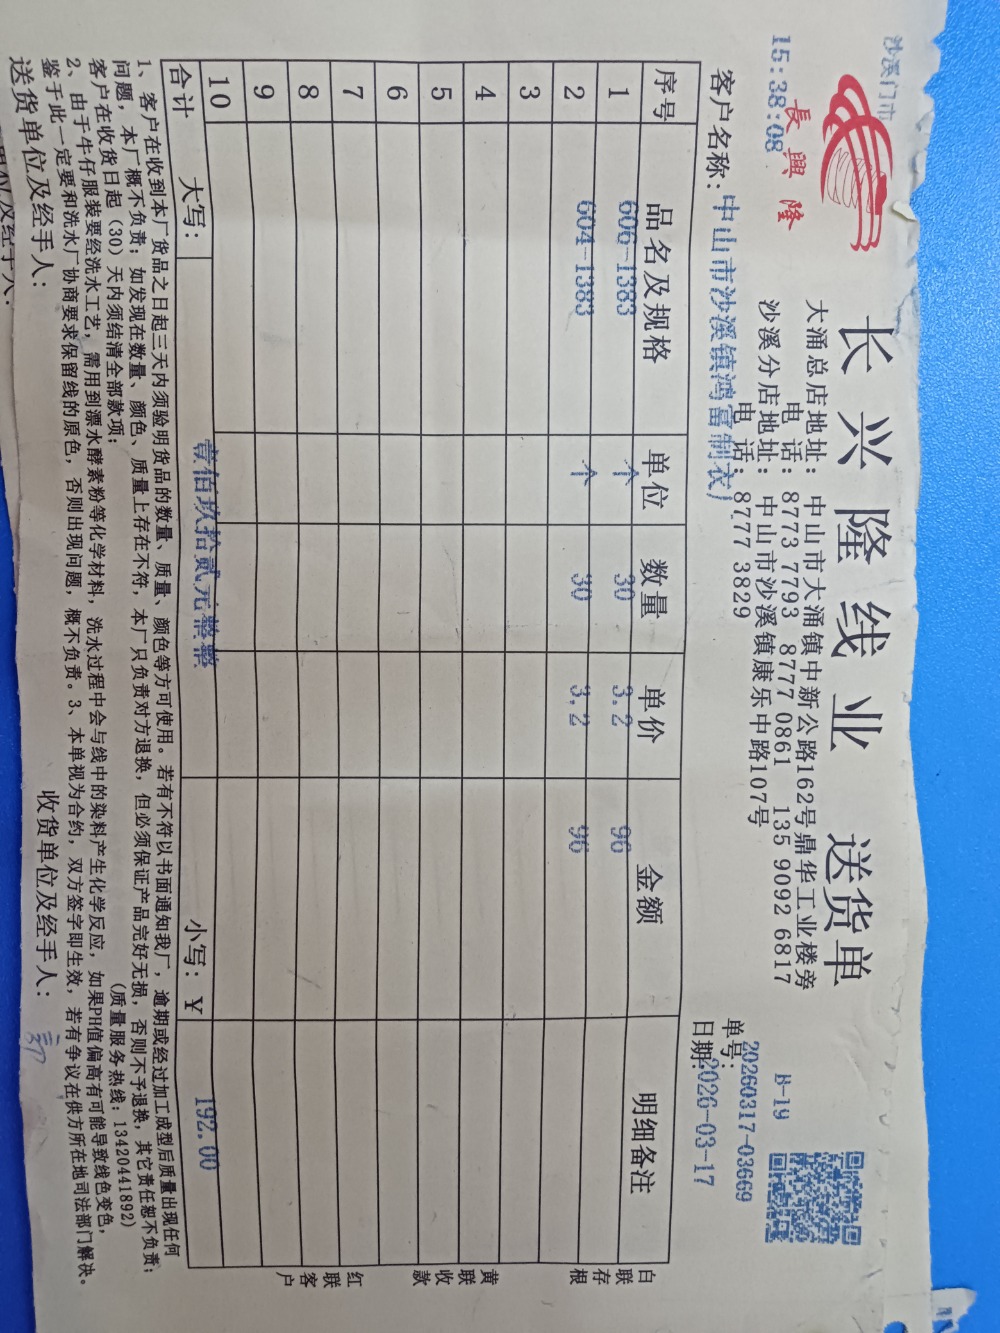 沙溪门市
15:38:08
長興隆
长兴隆线业 送货单
大涌总店地址：中山市大涌镇中新公路162号鼎华工业楼旁
电话：8773 7793 8777 0861 135 9092 6817
沙溪分店地址：中山市沙溪镇康乐中路107号
电话：8777 3829
H-19
单号：20260317-03669
客户名称：中山市沙溪镇鸿富制衣厂
日期：2026-03-17
序号 品名及规格 单位 数量 单价 金额 明细备注
1 606-1383 个 30 3.2 96
2 604-1383 个 30 3.2 96
3
4
5
6
7
8
9
10
合计 大写：壹佰玖拾贰元整整 小写：￥ 192.00
白联存根
黄联收款
红联客户
1、客户在收到本厂货品之日起三天内须验明货品的数量、质量、颜色等方可使用。若有不符以书面通知我厂，逾期或经过加工成型后质量出现任何
问题，本厂概不负责；如发现在数量、颜色、质量上存在不符，本厂只负责对方退换，但必须保证产品完好无损，否则不予退换，其它责任恕不负责；
客户在收货日起（30）天内须结清全部款项；
(质量服务热线：13420441892)
2、由于牛仔服装要经洗水工艺，需用到漂水酵素粉等化学材料，洗水过程中会与线中的染料产生化学反应，如果PH值偏高有可能导致线色变色，
鉴于此一定要和洗水厂协商要求保留线的原色，否则出现问题，概不负责。3、本单视为合约，双方签字即生效，若有争议在供方所在地司法部门解决。
送货单位及经手人： 收货单位及经手人：